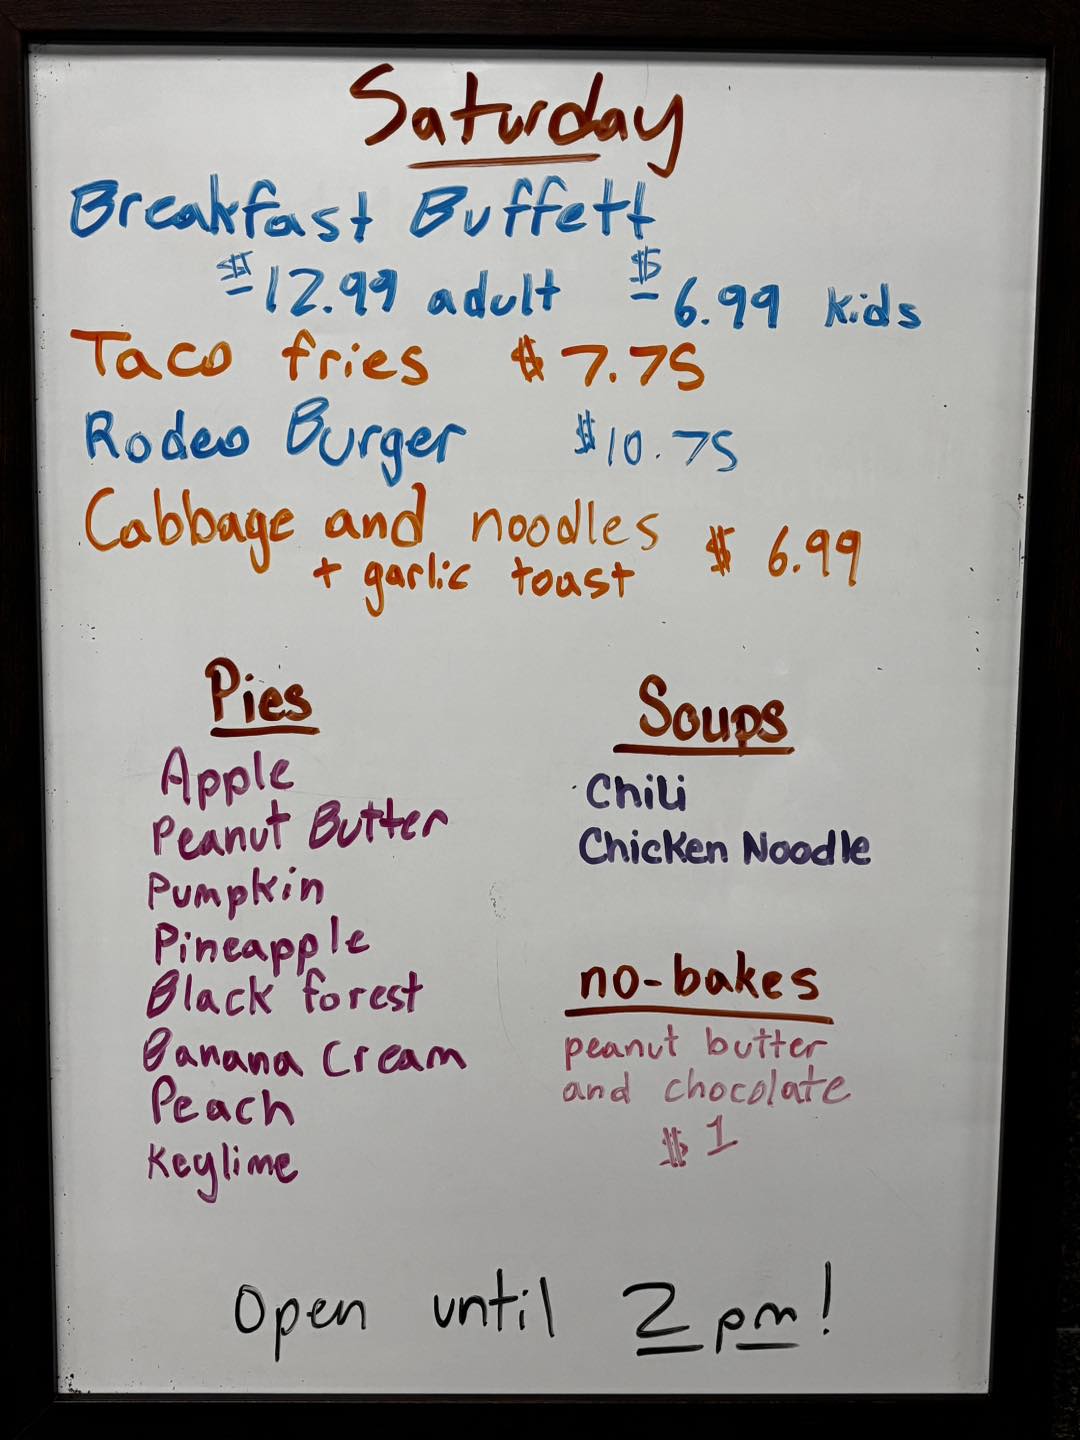 Saturday
Breakfast Buffett
$12.99 adult $6.99 kids
Taco fries $7.75
Rodeo Burger $10.75
Cabbage and noodles $6.99
+ garlic toast
Pies
Apple
Peanut Butter
Pumpkin
Pineapple
Black forest
Banana Cream
Peach
Keylime
Soups
Chili
Chicken Noodle
no-bakes
peanut butter
and chocolate
$1
Open until 2pm!